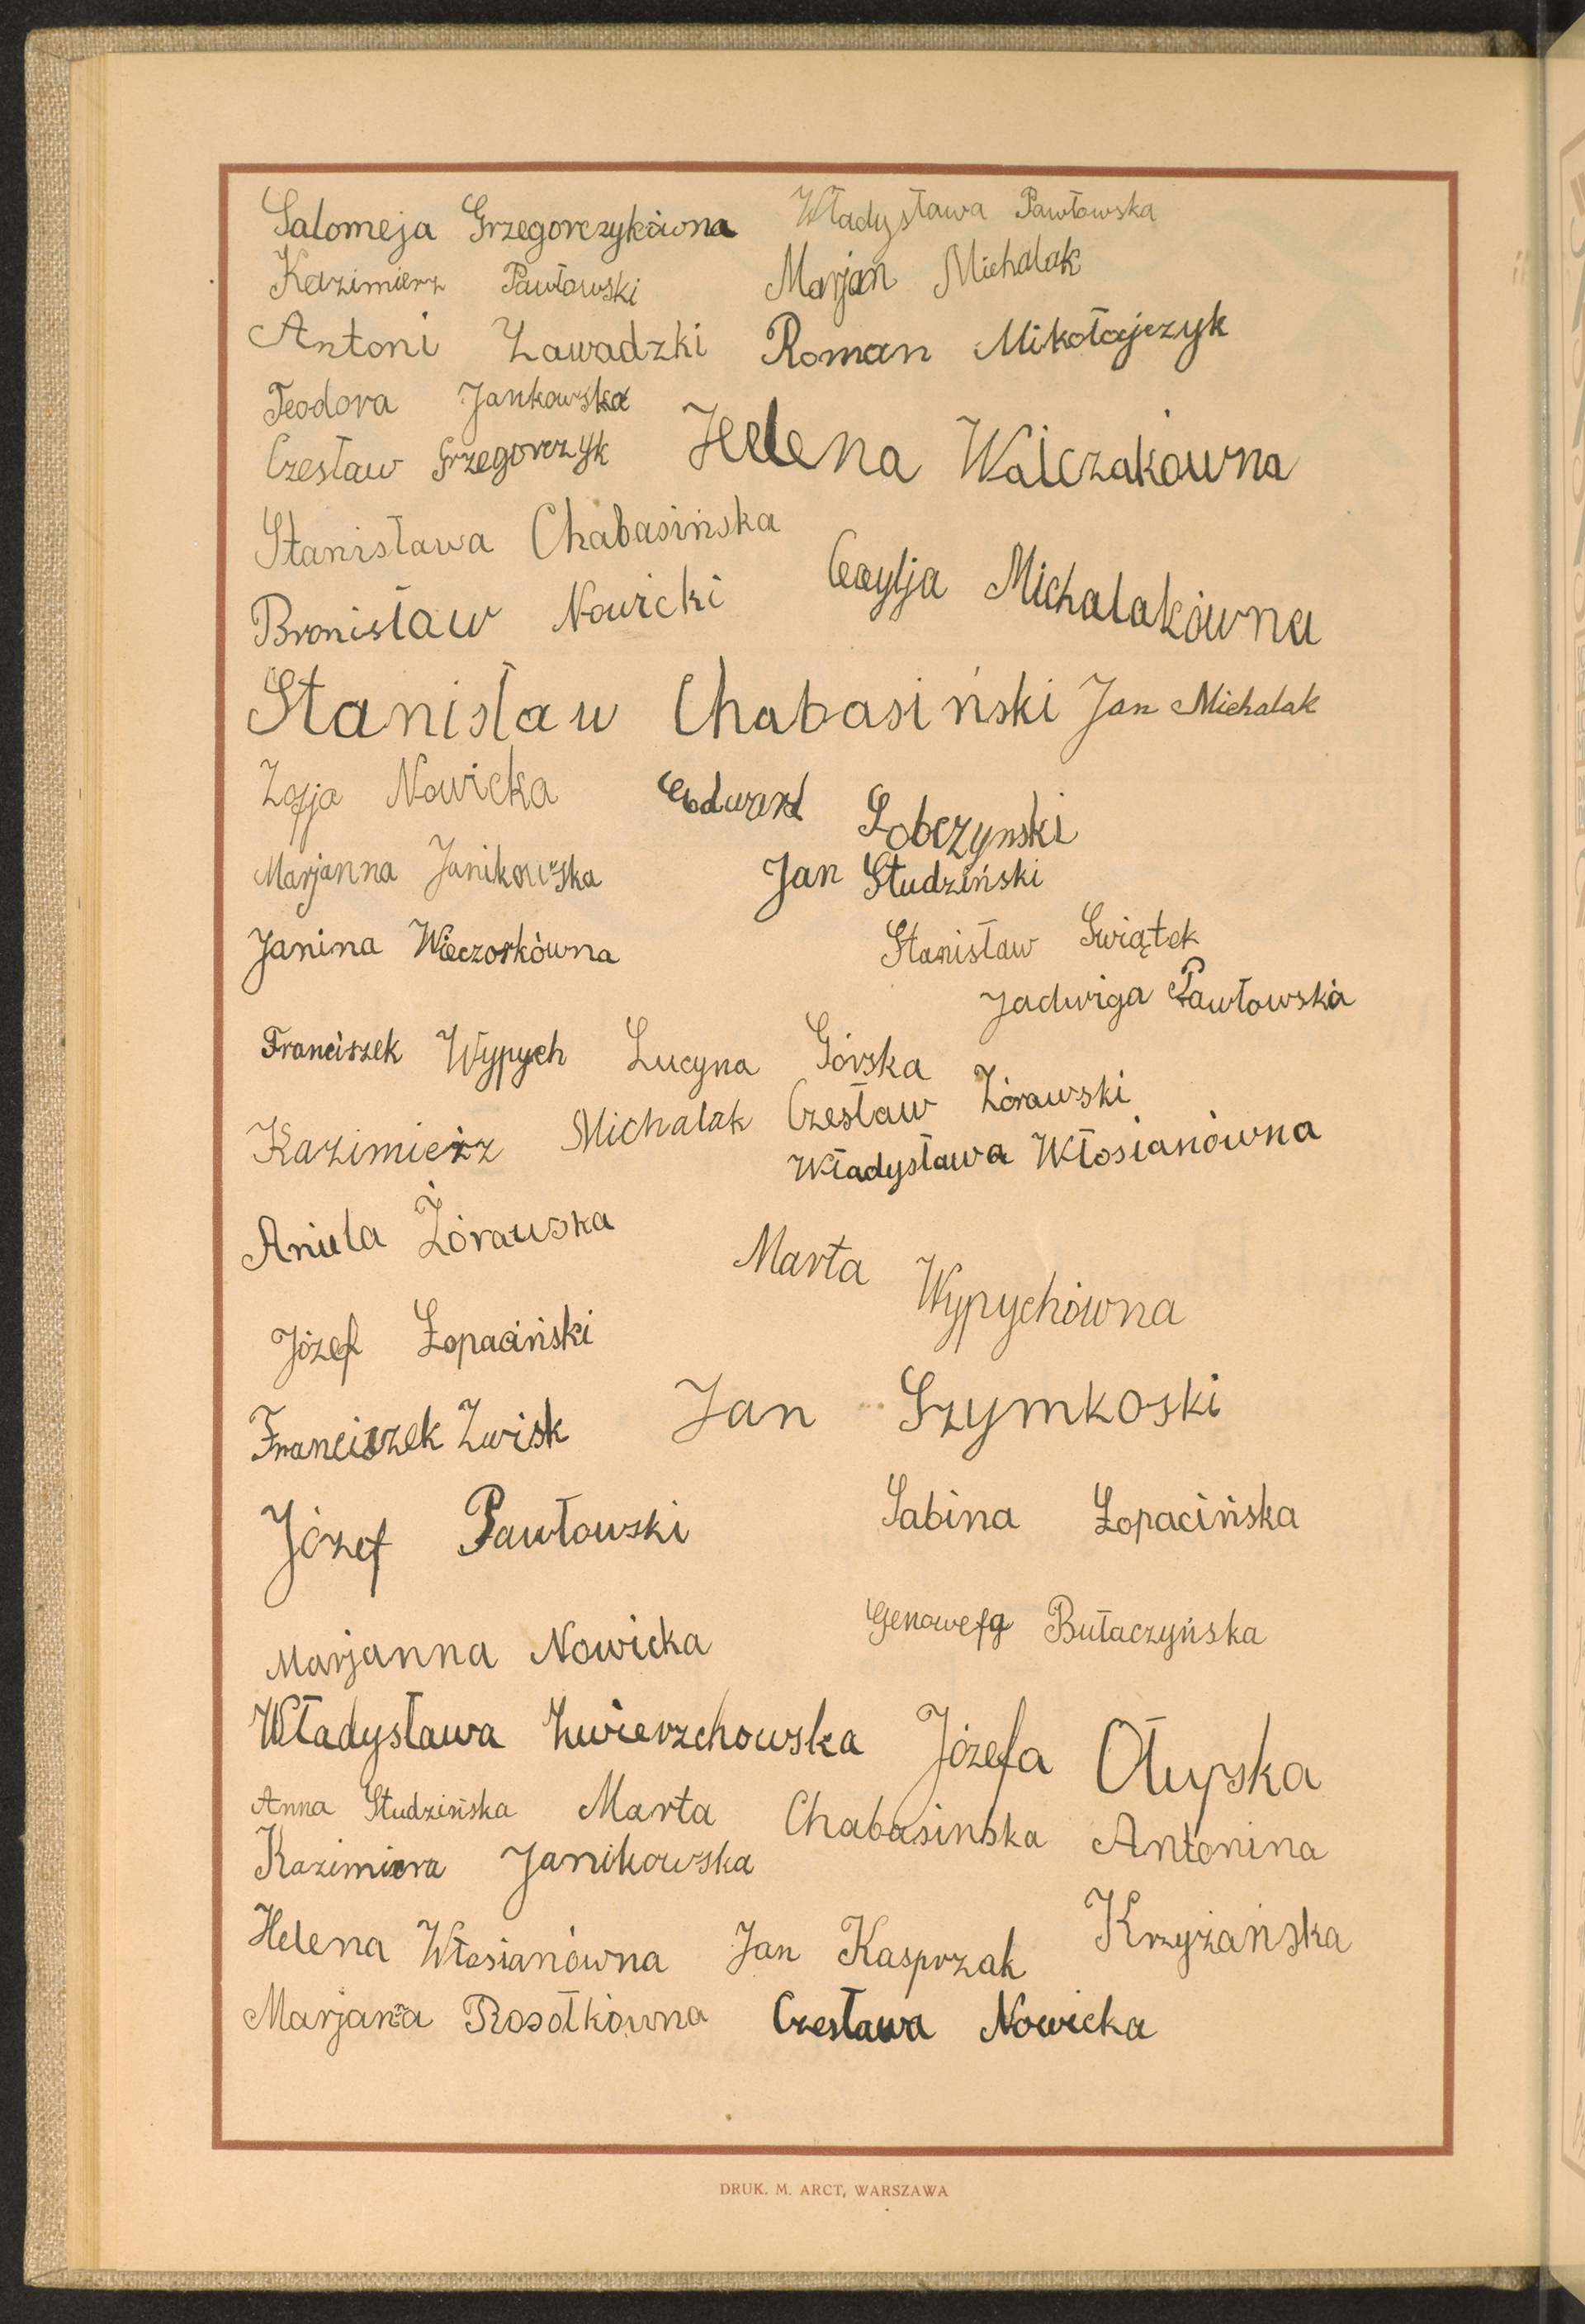 Salomeja Grzegorczykówna Władysława Pawłowska
Kazimierz Pawłowski Marjan Michalak
Antoni Zawadzki Roman Mikołajczyk
Teodora Jankowska
Czesław Grzegorczyk Helena Walczakówna
Stanisława Chabasińska
Bronisław Nowicki Cecylja Michalakówna
Stanisław Chabasiński Jan Michalak
Zofja Nowicka Edward Łobczynski
Marjanna Janikowska Jan Studziński
Janina Wieczorkówna Stanisław Swiątek
Jadwiga Pawłowska
Franciszek Wypych Lucyna Górska
Kazimierz Michalak Czesław Żórawski
Władysława Włosianówna
Aniela Żórawska
Marta Wypychówna
Józef Łopaciński
Franciszek Zwisk Jan Szymkoski
Józef Pawłowski Sabina Łopacińska
Marjanna Nowicka Genowefa Bułaczyńska
Władysława Zwierzchowska Józefa Ołupska
Anna Studzińska Marta Chabasinska Antonina
Kazimiera Janikowska
Helena Włosianówna Jan Kasprzak Krzyżańska
Marjanna Rosołkówna Czesława Nowicka
DRUK. M. ARCT, WARSZAWA